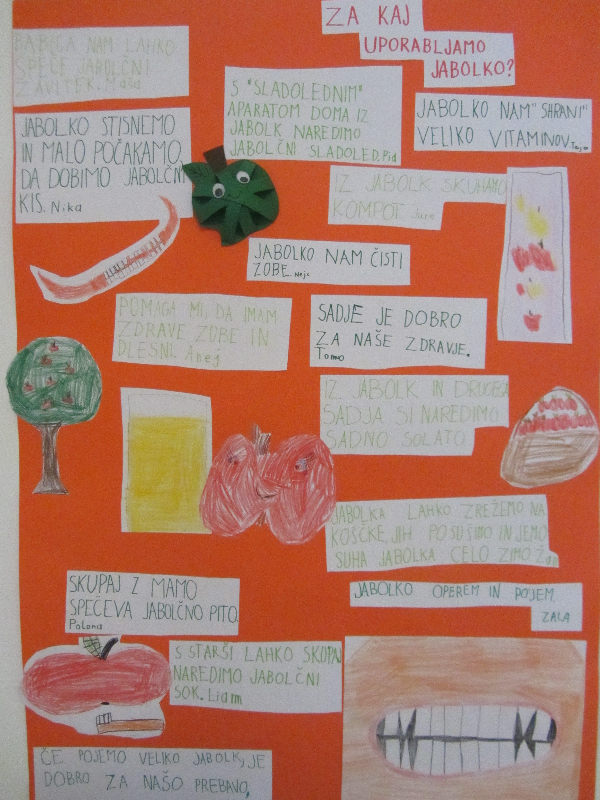 ZA KAJ
UPORABLJAMO
JABOLKO?
BABICA NAM LAHKO
SPEČE JABOLČNI
ZAVITEK. Maša
JABOLKO STISNEMO
IN MALO POČAKAMO,
DA DOBIMO JABOLČNI
KIS. Nika
S "SLADOLEDNIM"
APARATOM DOMA IZ
JABOLK NAREDIMO
JABOLČNI SLADOLED. Pia
JABOLKO NAM "SHRANI"
VELIKO VITAMINOV.
IZ JABOLK SKUHAMO
KOMPOT. Jure
JABOLKO NAM ČISTI
ZOBE. Neja
POMAGA MI, DA IMAM
ZDRAVE ZOBE IN
DLESNI. Anej
SADJE JE DOBRO
ZA NAŠE ZDRAVJE.
Tomo
IZ JABOLK IN DRUGEGA
SADJA SI NAREDIMO
SADNO SOLATO.
JABOLKA LAHKO ZREŽEMO NA
KOŠČKE, JIH POSUŠIMO IN JEMO
SUHA JABOLKA CELO ZIMO.
SKUPAJ Z MAMO
SPEČEVA JABOLČNO PITO.
Polona
JABOLKO OPEREM IN POJEM.
ZALA
S STARŠI LAHKO SKUPAJ
NAREDIMO JABOLČNI
SOK. Liam
ČE POJEMO VELIKO JABOLK, JE
DOBRO ZA NAŠO PREBAVO,